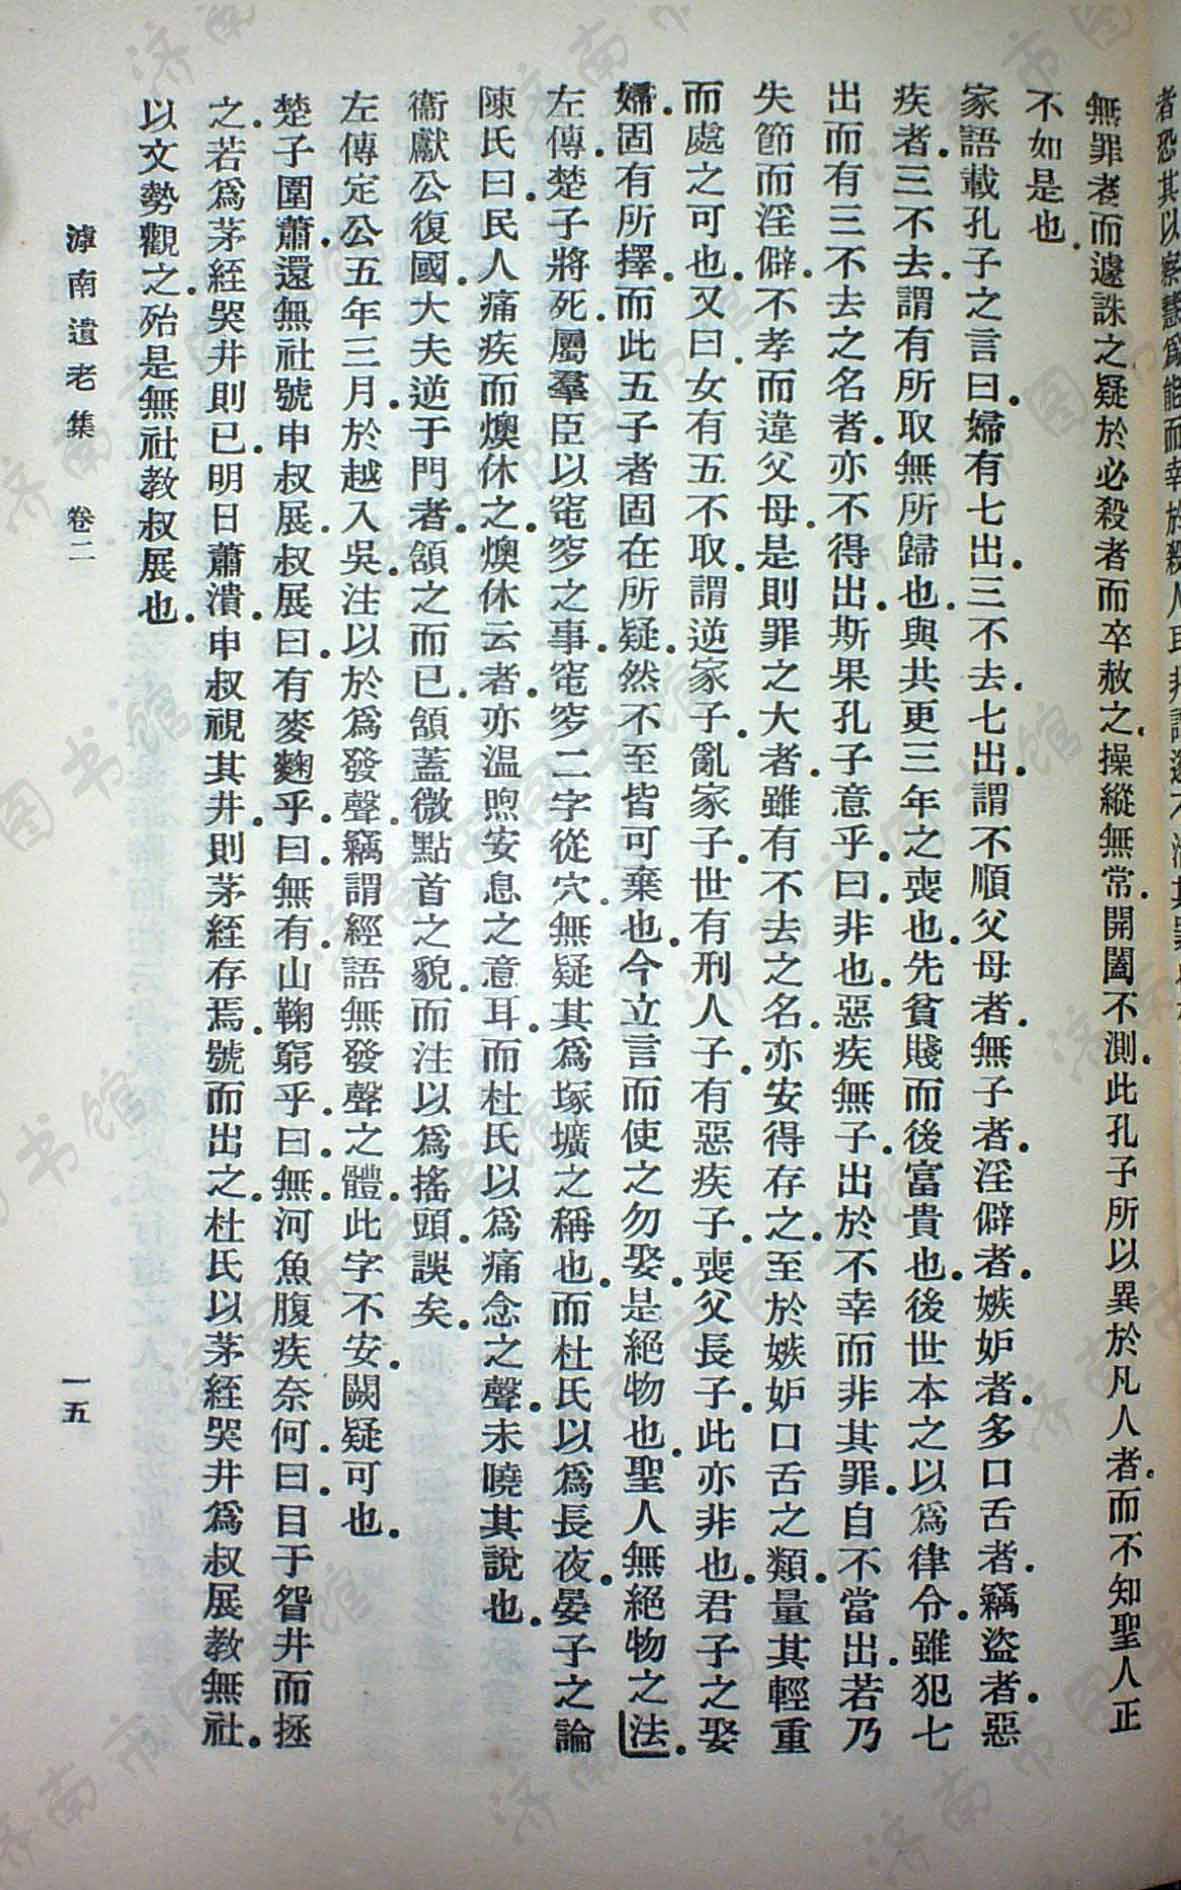 無罪者而遽誅之疑於必殺者而卒赦之操縱無常開闔不測此孔子所以異於凡人者而不知聖人正
不如是也
家語載孔子之言曰婦有七出三不去七出謂不順父母者無子者淫僻者嫉妒者多口舌者竊盜者惡
疾者三不去謂有所取無所歸也與共更三年之喪也先貧賤而後富貴也後世本之以爲律令雖犯七
出而有三不去之名者亦不得出斯果孔子意乎曰非也惡疾無子出於不幸而非其罪自不當出若乃
失節而淫僻不孝而違父母是則罪之大者雖有不去之名亦安得存之至於嫉妒口舌之類量其輕重
而處之可也又曰女有五不取謂逆家子亂家子世有刑人子有惡疾子喪父長子此亦非也君子之娶
婦固有所擇而此五子者固在所疑然不至皆可棄也今立言而使之勿娶是絕物也聖人無絕物之法
左傳楚子將死屬羣臣以窀穸之事窀穸二字從穴無疑其爲塚壙之稱也而杜氏以爲長夜晏子之論
陳氏曰民人痛疾而燠休之燠休云者亦温煦安息之意耳而杜氏以爲痛念之聲未曉其說也
衞獻公復國大夫逆于門者頷之而已頷蓋微點首之貌而注以爲搖頭誤矣
左傳定公五年三月於越入吳注以於爲發聲竊謂經語無發聲之體此字不安闕疑可也
楚子圍蕭還無社號申叔展叔展曰有麥麴乎曰無有山鞠窮乎曰無河魚腹疾奈何曰目于眢井而拯
之若爲茅絰哭井則已明日蕭潰申叔視其井則茅絰存焉號而出之杜氏以茅絰哭井爲叔展教無社
以文勢觀之殆是無社教叔展也
滹南遺老集 卷二 一五